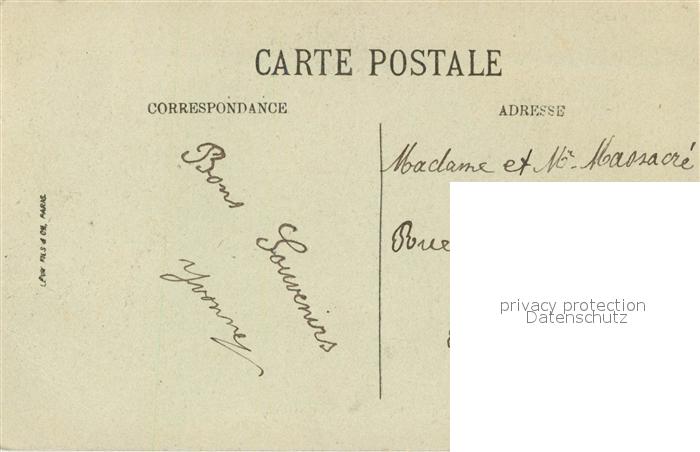 CARTE POSTALE
CORRESPONDANCE
ADRESSE
Bons
Souvenirs
Yvonne
Madame et Mr. Massacré
Rue
privacy protection
Datenschutz